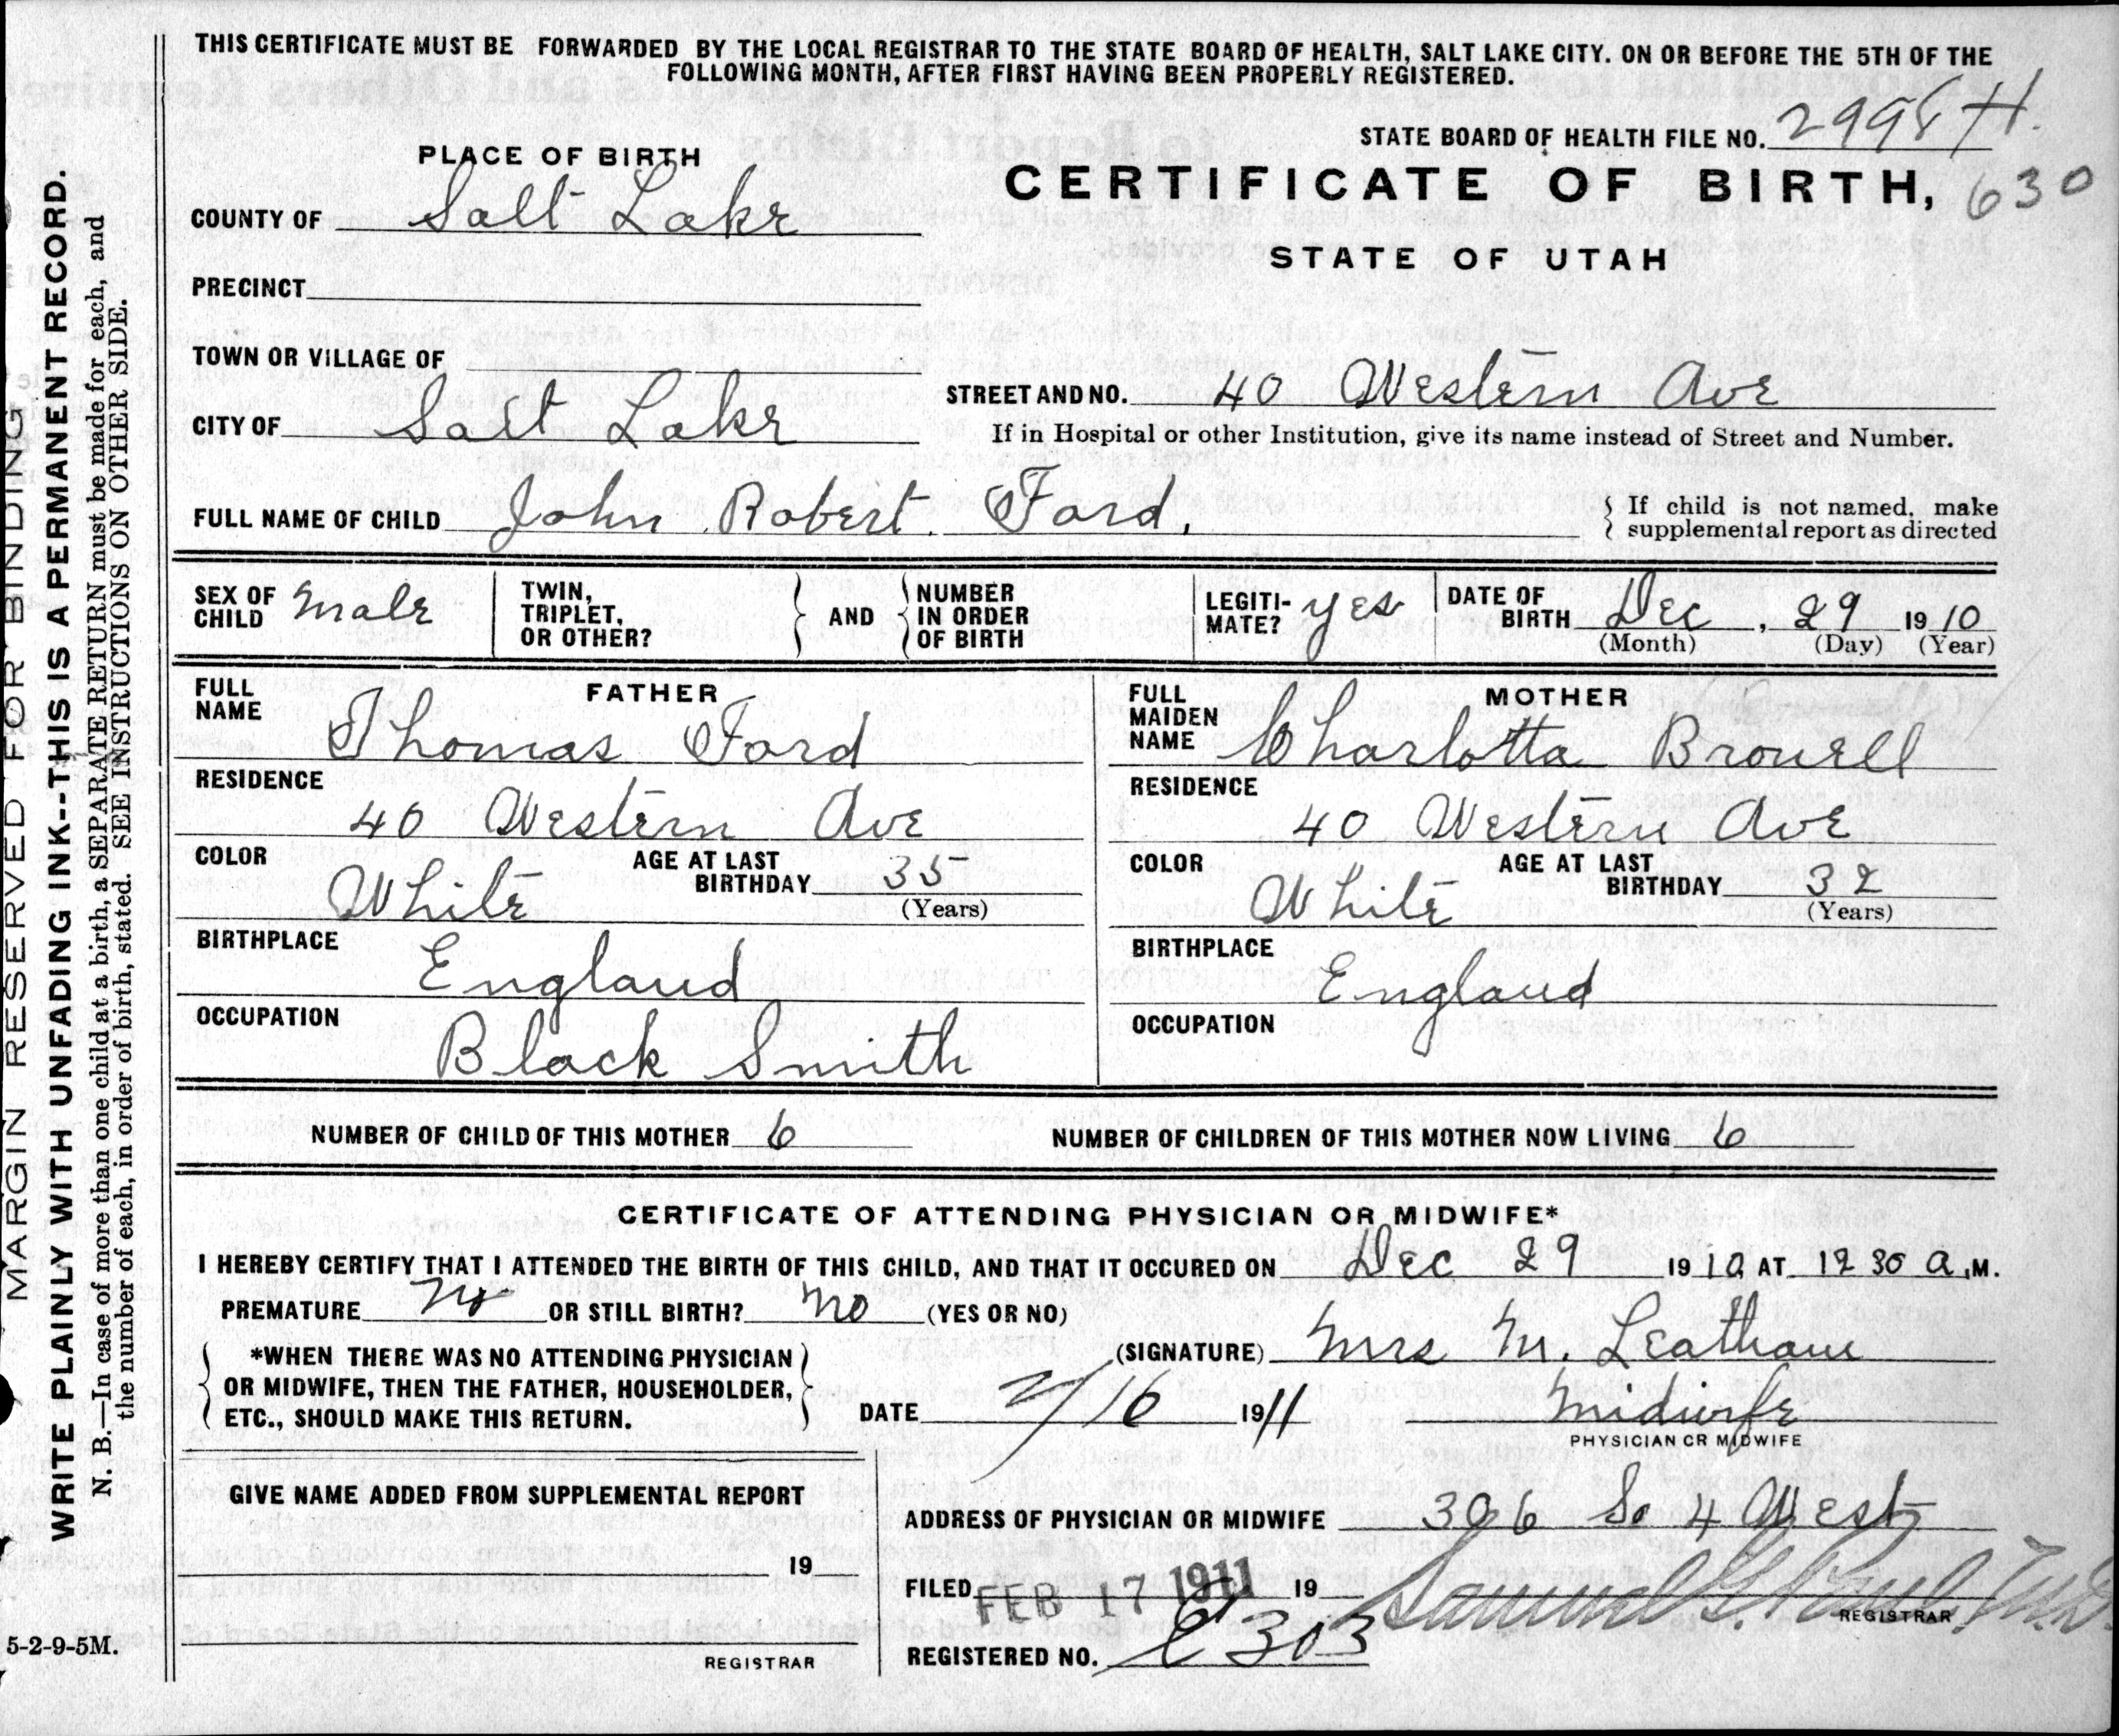 THIS CERTIFICATE MUST BE FORWARDED BY THE LOCAL REGISTRAR TO THE STATE BOARD OF HEALTH, SALT LAKE CITY. ON OR BEFORE THE 5TH OF THE
FOLLOWING MONTH, AFTER FIRST HAVING BEEN PROPERLY REGISTERED.
STATE BOARD OF HEALTH FILE NO. 2998 H.
PLACE OF BIRTH
CERTIFICATE OF BIRTH, 630
COUNTY OF Salt Lake
STATE OF UTAH
PRECINCT
TOWN OR VILLAGE OF
STREET AND NO. 40 Western Ave
CITY OF Salt Lake
If in Hospital or other Institution, give its name instead of Street and Number.
FULL NAME OF CHILD John Robert Ford.
If child is not named, make
supplemental report as directed
SEX OF CHILD Male
TWIN, TRIPLET, OR OTHER?
AND
NUMBER IN ORDER OF BIRTH
LEGITI-MATE? yes
DATE OF BIRTH Dec, 29 1910
(Month) (Day) (Year)
FATHER
FULL NAME Thomas Ford
RESIDENCE
40 Western Ave
COLOR White
AGE AT LAST BIRTHDAY 35
(Years)
BIRTHPLACE
England
OCCUPATION
Black Smith
MOTHER
FULL MAIDEN NAME Charlotta Browell
RESIDENCE
40 Western Ave
COLOR White
AGE AT LAST BIRTHDAY 32
(Years)
BIRTHPLACE
England
OCCUPATION
NUMBER OF CHILD OF THIS MOTHER 6 NUMBER OF CHILDREN OF THIS MOTHER NOW LIVING 6
CERTIFICATE OF ATTENDING PHYSICIAN OR MIDWIFE*
I HEREBY CERTIFY THAT I ATTENDED THE BIRTH OF THIS CHILD, AND THAT IT OCCURED ON Dec 29 1910 AT 12 30 a.M.
PREMATURE No OR STILL BIRTH? No (YES OR NO)
*WHEN THERE WAS NO ATTENDING PHYSICIAN
OR MIDWIFE, THEN THE FATHER, HOUSEHOLDER,
ETC., SHOULD MAKE THIS RETURN.
(SIGNATURE) Mrs M. Leatham
DATE 2/16 1911 Midwife
PHYSICIAN OR MIDWIFE
GIVE NAME ADDED FROM SUPPLEMENTAL REPORT
19
REGISTRAR
ADDRESS OF PHYSICIAN OR MIDWIFE 306 So 4 West
FILED FEB 17 1911 19 Samuel G. Paul, M.D.
REGISTRAR
REGISTERED NO. 303
MARGIN RESERVED FOR BINDING
WRITE PLAINLY WITH UNFADING INK--THIS IS A PERMANENT RECORD.
N. B.—In case of more than one child at a birth, a SEPARATE RETURN must be made for each, and
the number of each, in order of birth, stated. SEE INSTRUCTIONS ON OTHER SIDE.
5-2-9-5M.